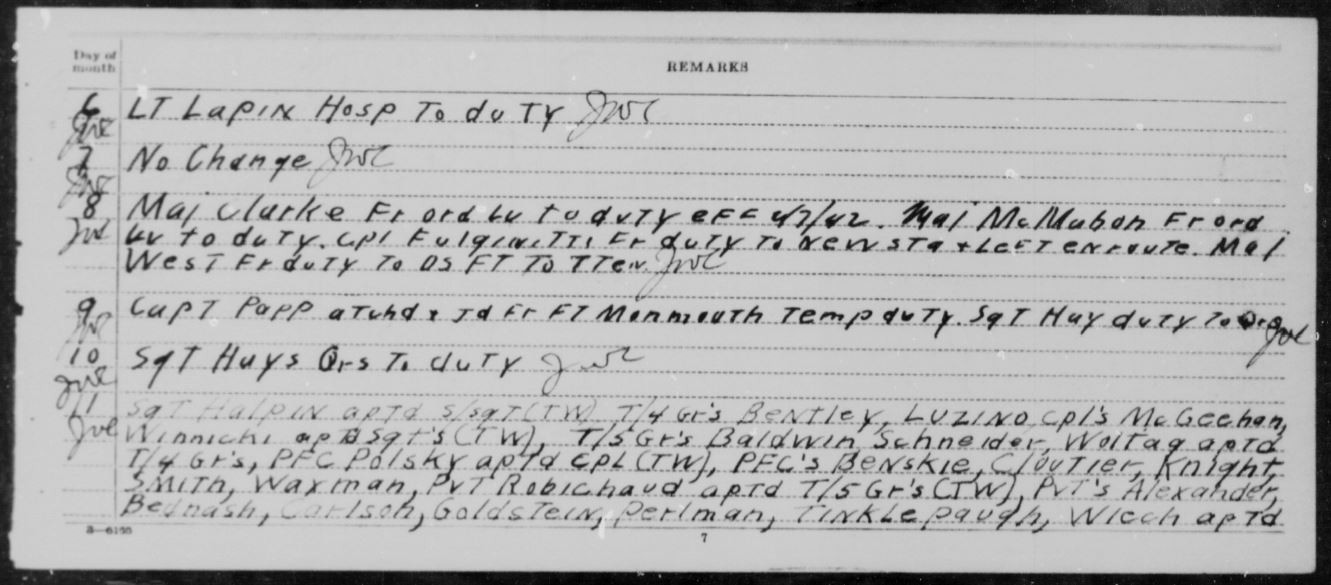 Day of month
REMARKS
6 LT Lapin Hosp To duTy JWC
JWC
7 No Change JWC
JWC
8 Maj Clarke Fr ord Lv to duty eff 4/7/42. Maj McMahon Fr ord
JWC Lv to duty. Cpl Fulginitti Fr duty To New sta + LeFT enroute. Maj
West Fr duty To DS FT ToTTen. JWC
9 CapT Papp aTchd + Jd Fr FT MonmouTh Temp duTy. SgT Hay duTy To Qrs
JWC JWC
10 SgT Hays Qrs To duTy JWC
JWC
11 SgT Halpin apTd S/SgT (TW) T/4 Gr's BenTley, Luzino, Cpl's McGeehan,
JWC Winnicki apTd SgT's (TW), T/5 Gr's Baldwin, Schneider, WolTag apTd
T/4 Gr's, PFC Polsky apTd CPL (TW), PFC's Benskie, ClouTier, KnighT,
SmiTh, Waxman, PvT Robichaud apTd T/5 Gr's (TW), PvT's Alexander,
Bednash, Carlson, GoldsTein, Perlman, Tinklepaugh, Wiech apTd
3—6155
7